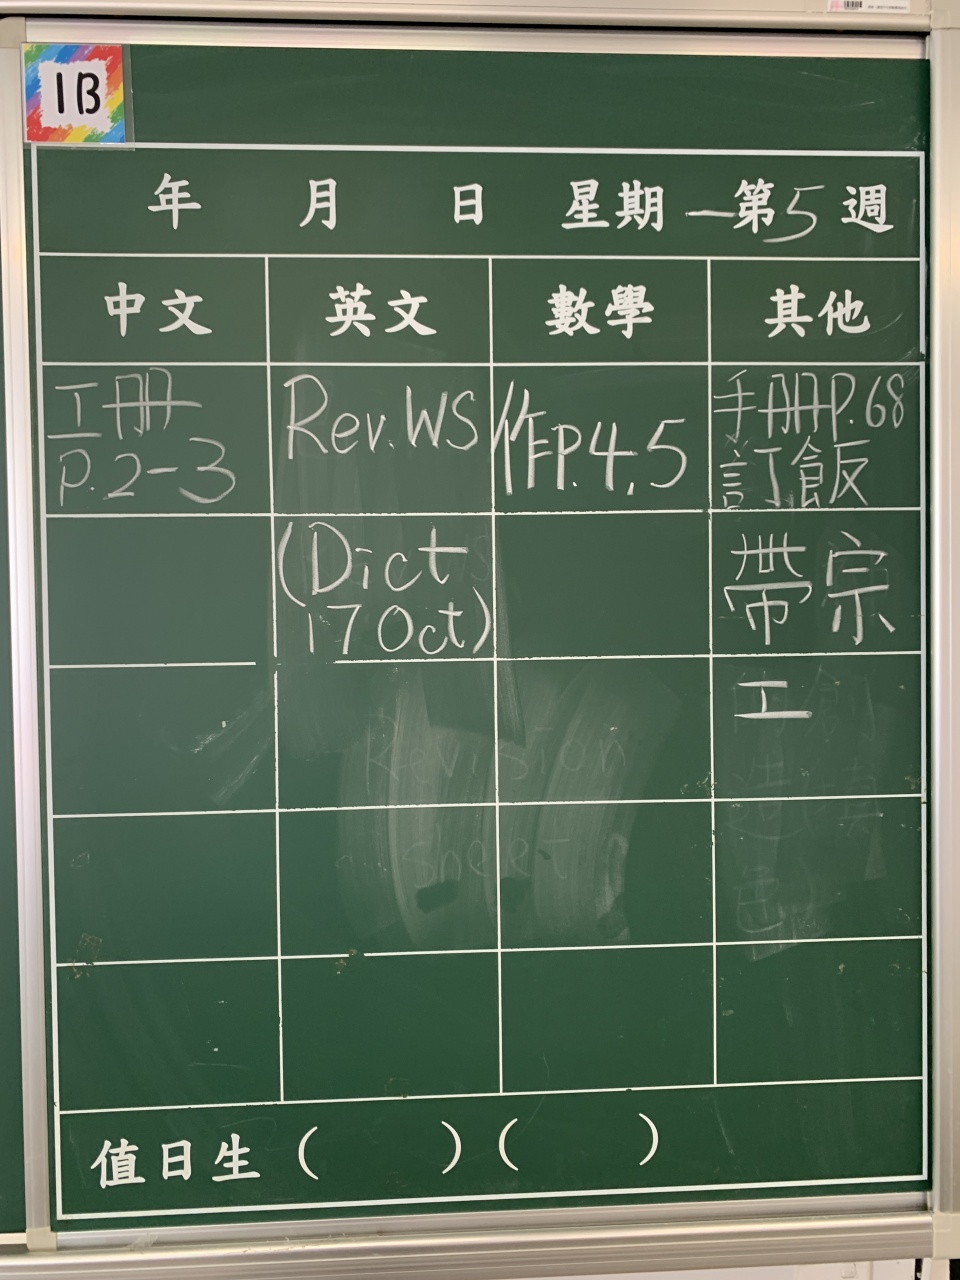 1B
年 月 日 星期一第5週
中文 英文 數學 其他
工冊
P.2-3
Rev.WS
作P.4,5
手冊P.68
訂飯
(Dict
17 Oct)
帶宗
工
Revision
sheet
值日生 ( ) ( )